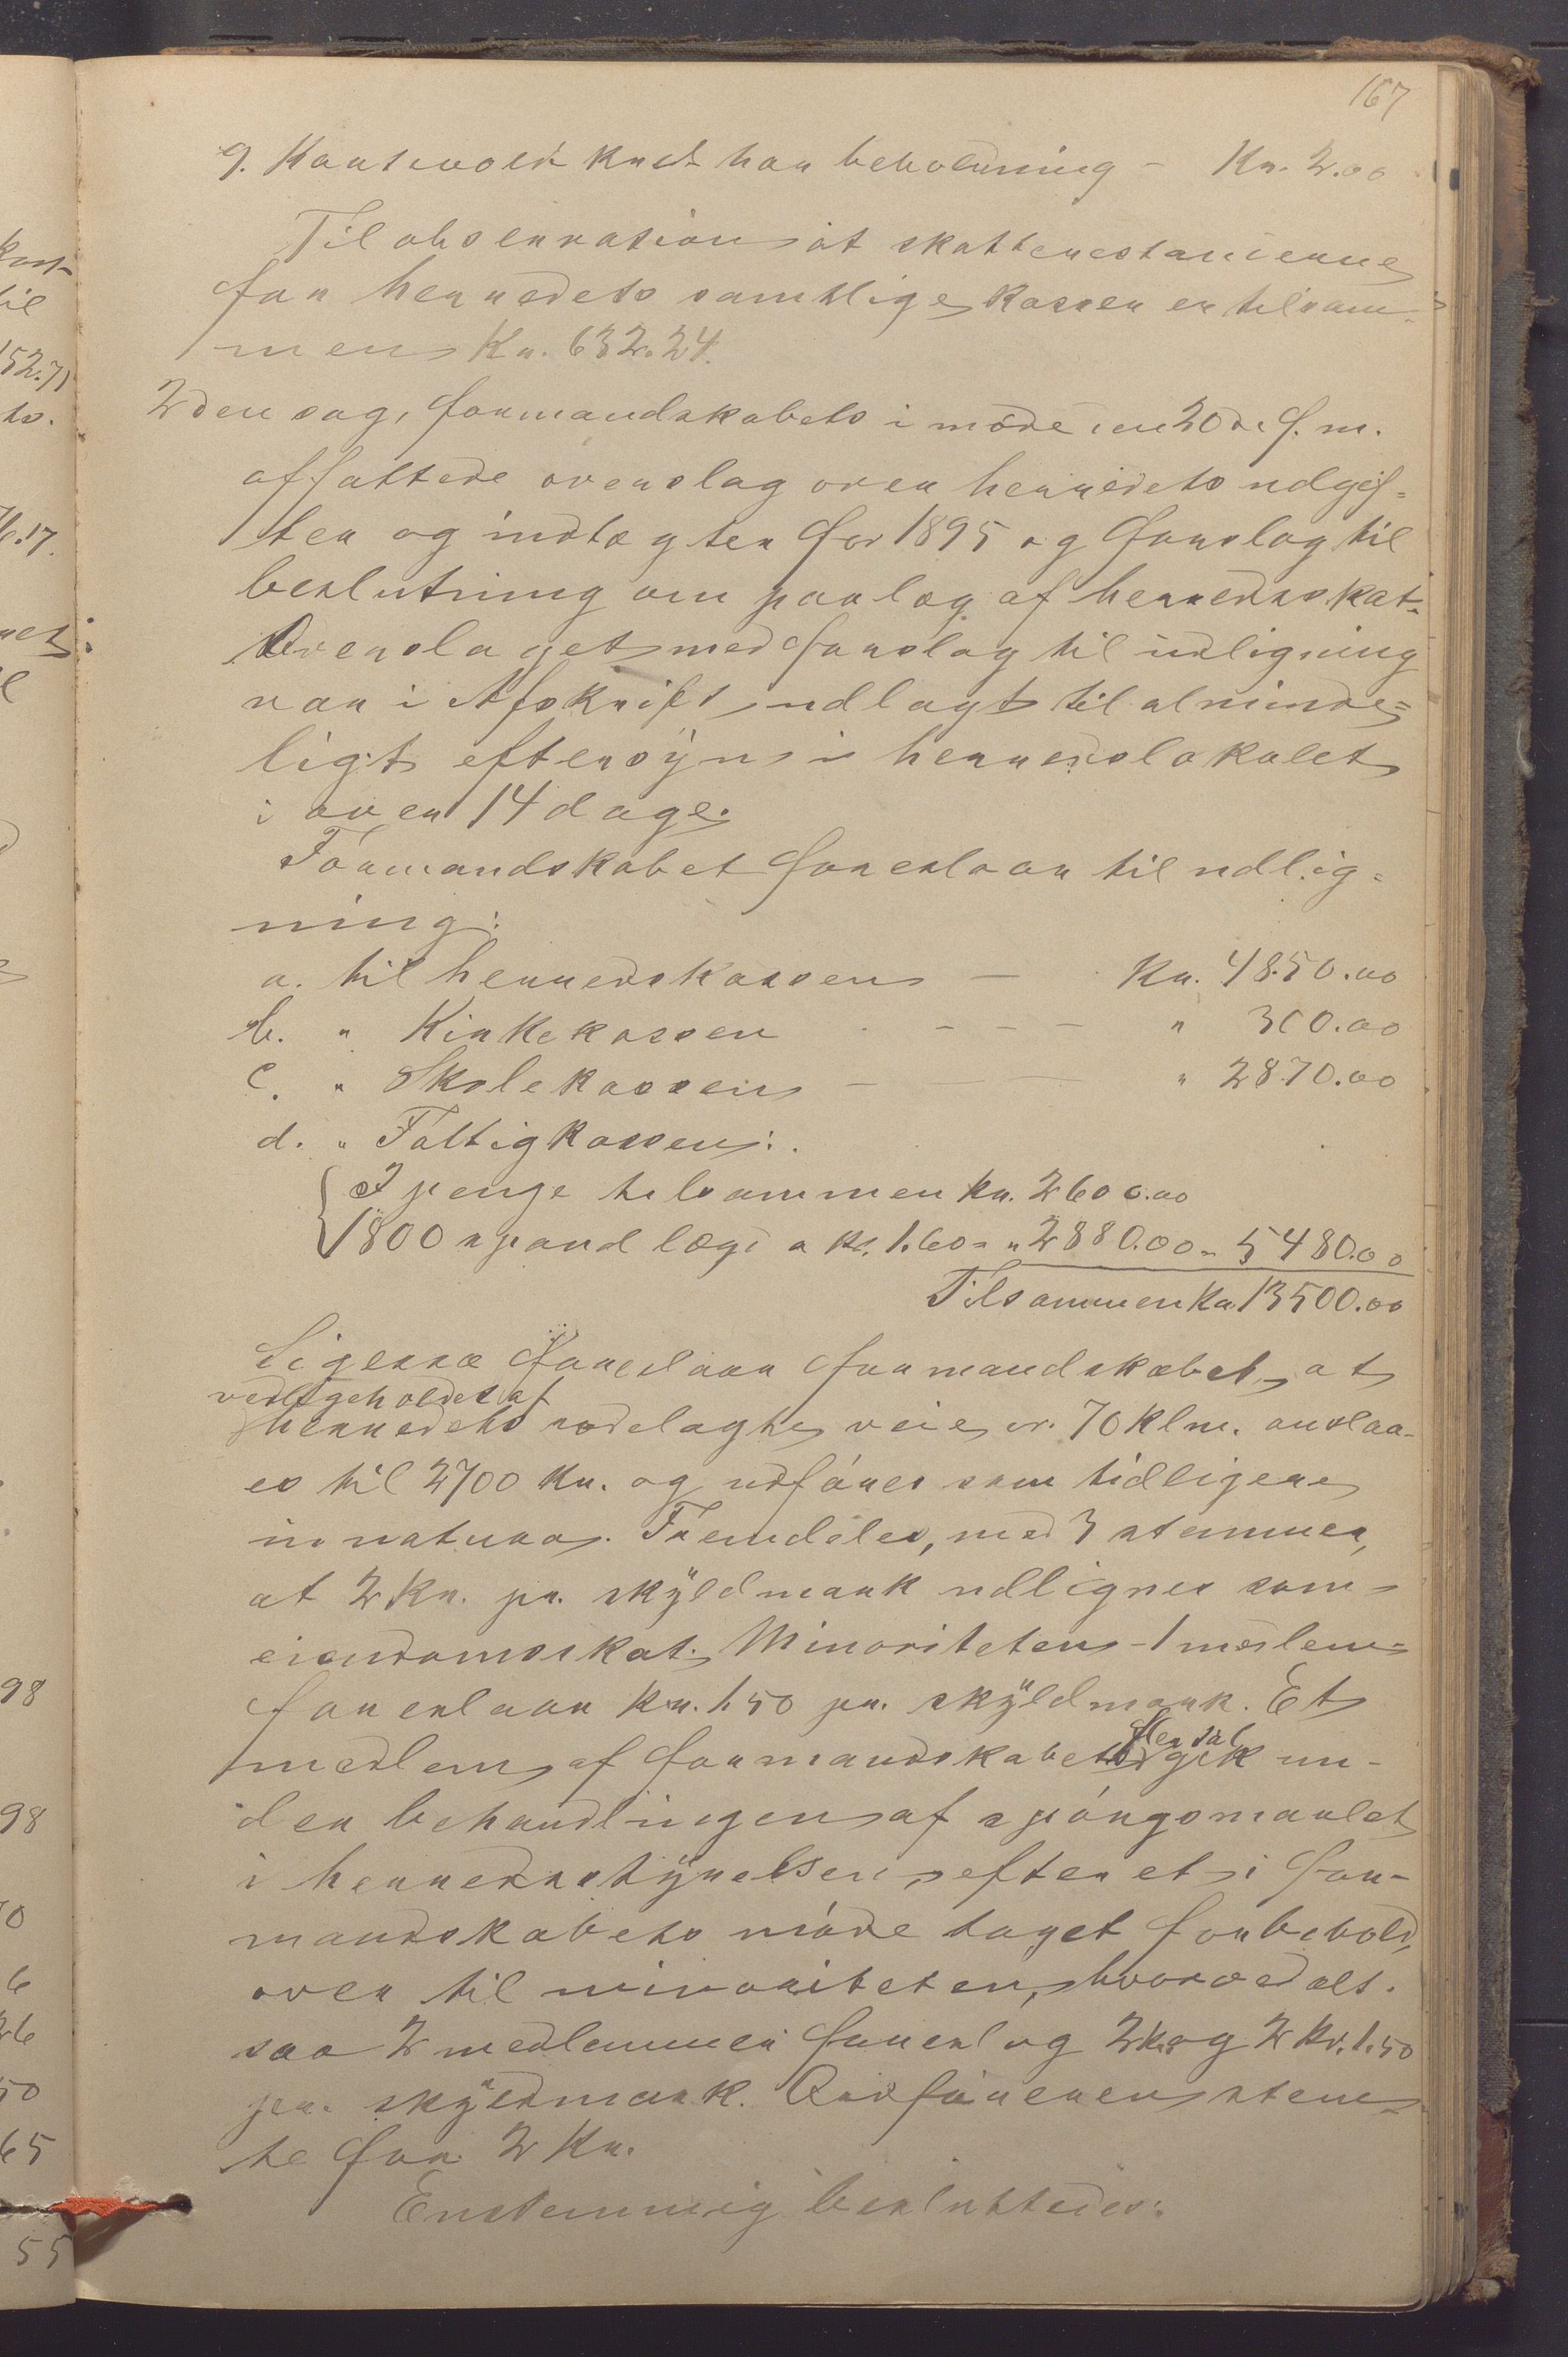 167
g. Kautevold Knut har beholdning - Kr. 2.00
Til observation at skatterestancerne
for herredets samtlige kasser er tilsam-
men Kr. 632.24.
2den sag, formandskabets i møde den 20de f. m.
affattede overslag over herredets udgif-
ter og indtægter for 1895 og forslag til
beslutning om paalæg af herredsskat.
Overslaget med forslag til udligning
var i Afskrift udlagt til alminde-
ligt eftersyn i herredslokalet
i over 14 dage.
Formandskabet foreslaar til udlig-
ning:
a. til herredskassen - Kr. 4850.00
b. " Kirkekassen - - - " 300.00
c. " Skolekassen - - " 2870.00
d. " Fattigkassen:
I penge tilsammen Kr. 2600.00
1800 spand lægd a Kr. 1.60 = " 2880.00 = 5480.00
Tilsammen Kr. 13500.00
Ligesaa foreslaar formandskabet, at
vedligeholdes af
herredets rodelagte veie, 70 klm. anslaa-
es til 2700 Kr. og udføres som tidligere
in natura. Fremdeles, med 3 stemmer,
at 2 Kr. pr. skyldmark udlignes som
eiendomsskat. Minoriteten - 1 medlem -
foreslaar Kr. 1.50 pr. skyldmark. Et
medlem af formandskabet gik un-
der behandlingen af spørgsmaalet
i herredsstyrelsen, efter et i for-
mandskabets møde taget forbehold,
over til minoriteten, hvorved alt-
saa 2 medlemmer foreslog 2 Kr. og 2 Kr. 1.50
pr. skyldmark. Ordføreren stem-
te for 2 Kr.
Enstemmig besluttedes: